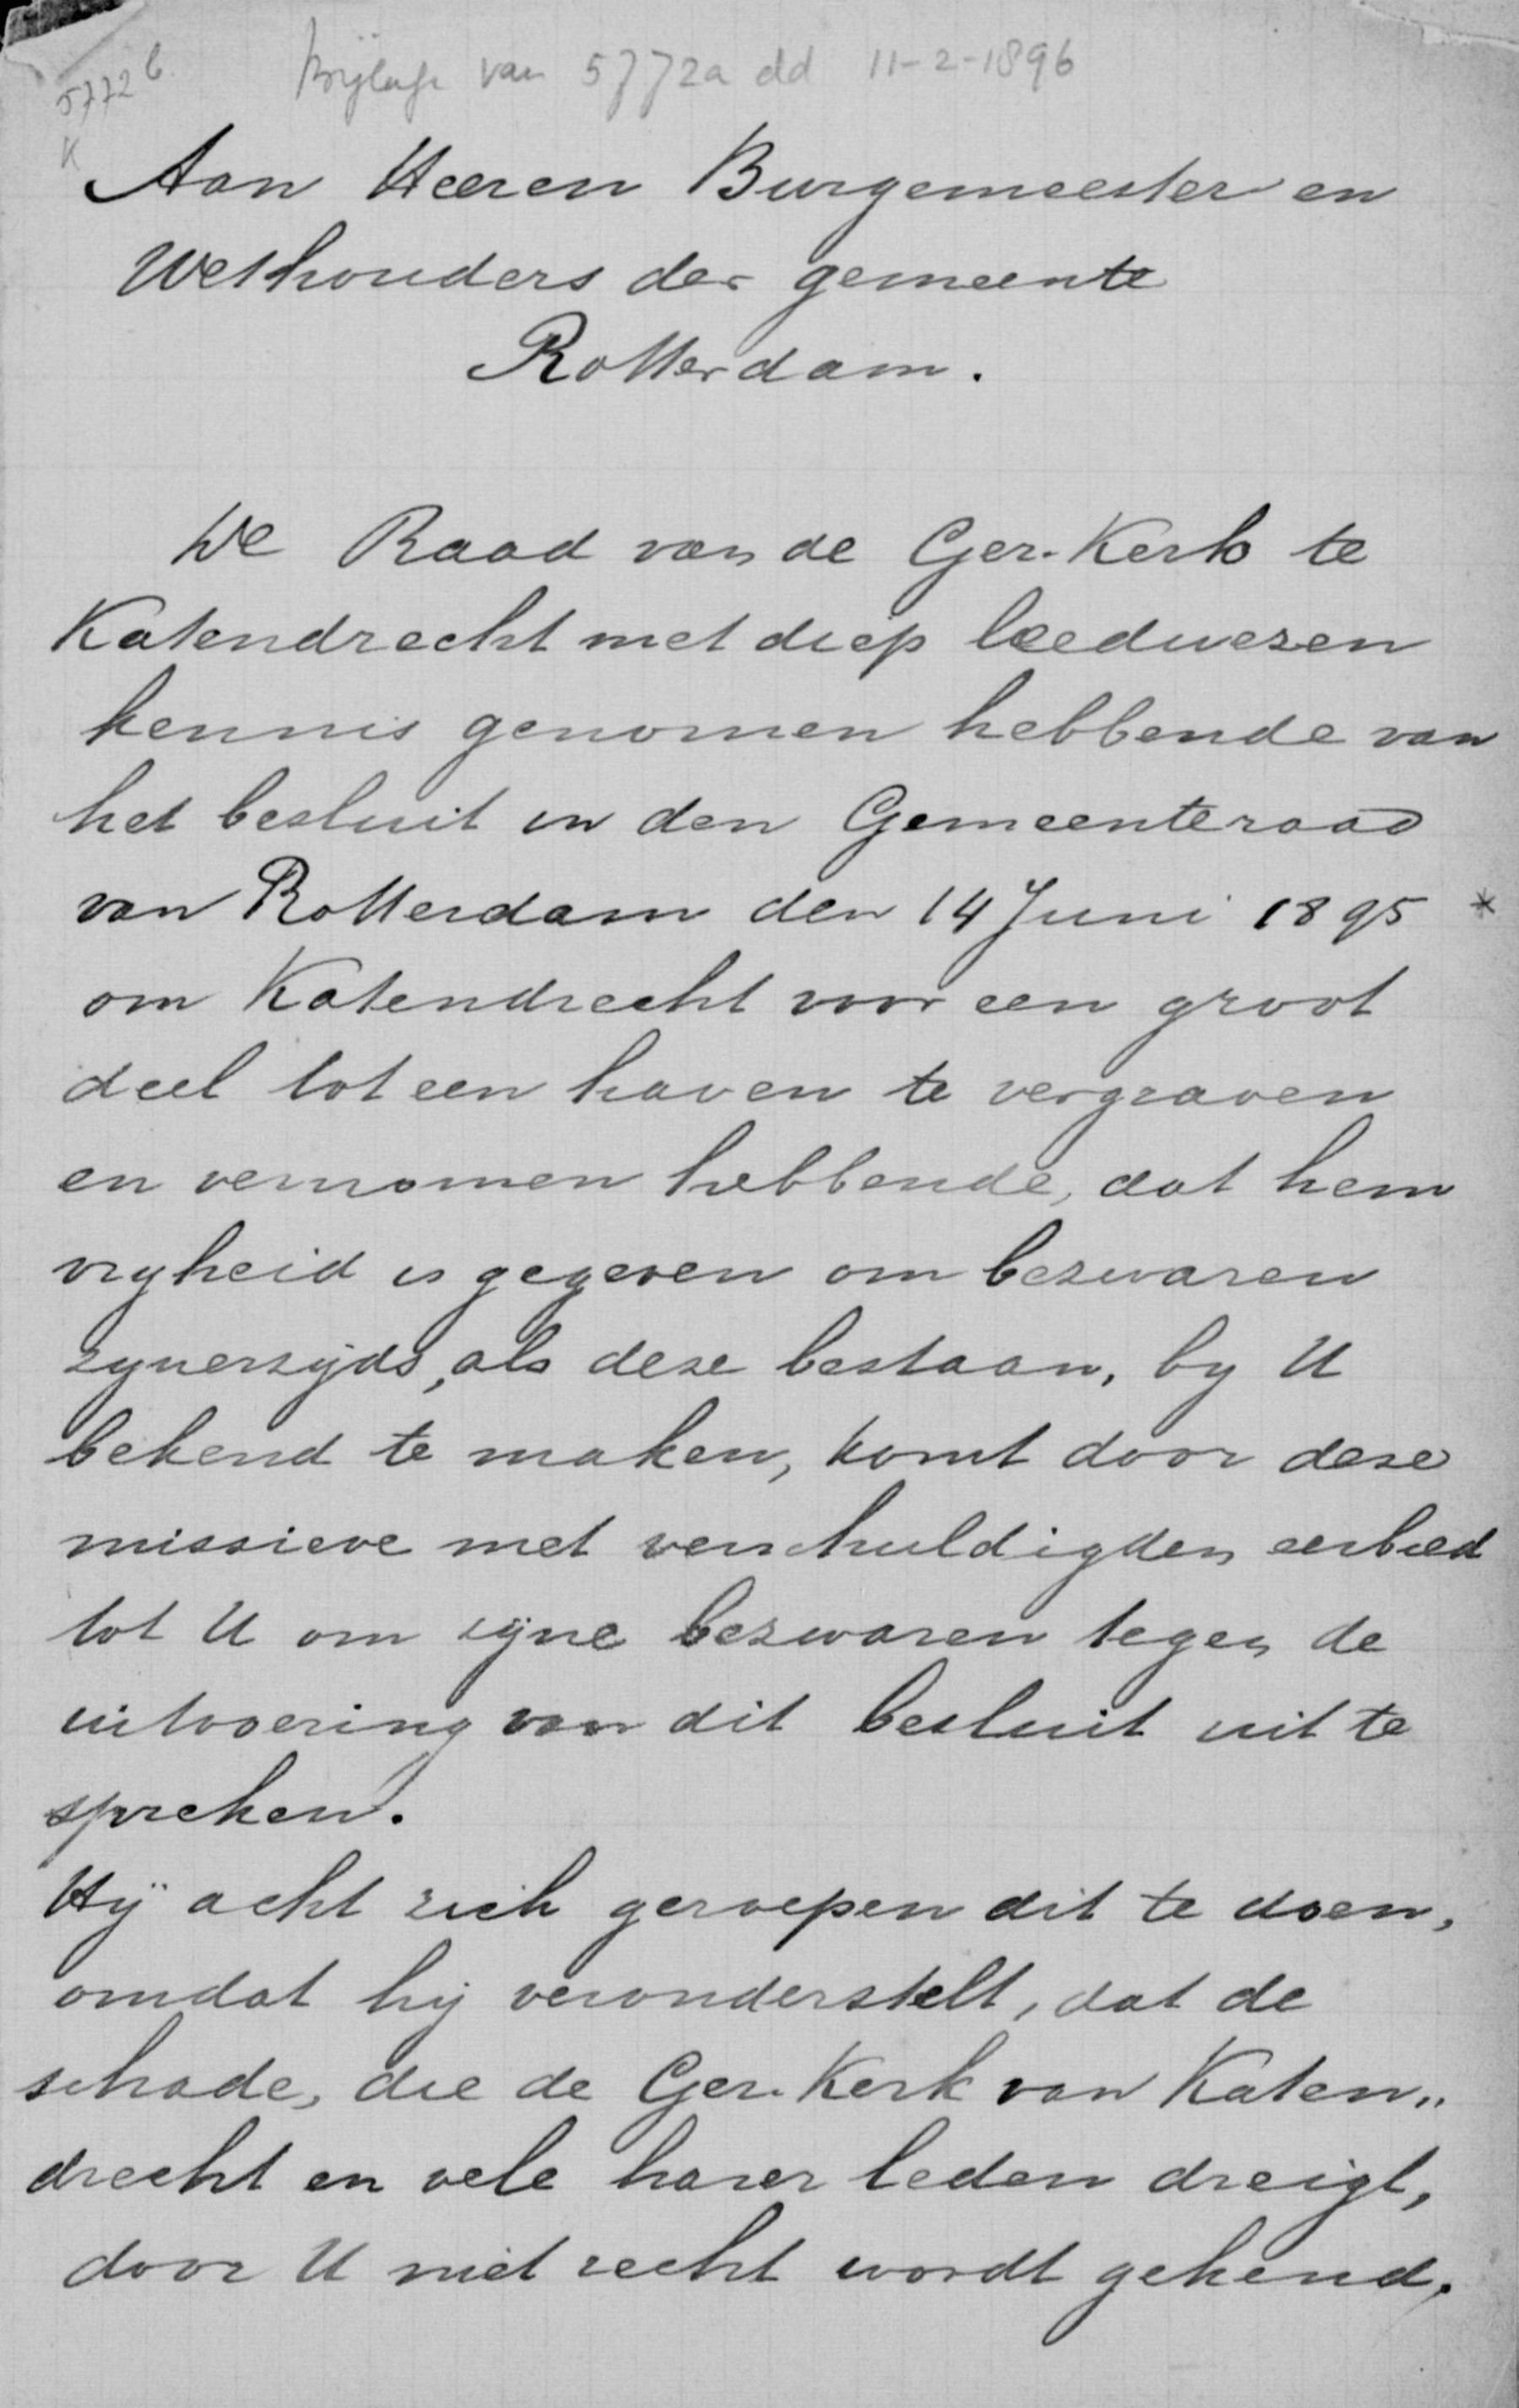 5772 b
Bijlage van 5772a dd 11-2-1896
K
Aan Heeren Burgemeester en
Wethouders der gemeente
Rotterdam.
De Raad van de Ger. Kerk te
Katendrecht met diep leedwezen
kennis genomen hebbende van
het besluit in den Gemeenteraad
van Rotterdam den 14 Juni 1895 *
om Katendrecht voor een groot
deel tot een haven te vergraven
en vernomen hebbende, dat hem
vryheid is gegeven om bezwaren
zynerzyds, als deze bestaan, by U
bekend te maken, komt door deze
missieve met verschuldigden eerbied
tot U om zijne bezwaren tegen de
uitvoering van dit besluit uit te
spreken.
Hij acht zich geroepen dit te doen,
omdat hij veronderstelt, dat de
schade, die de Ger. Kerk van Katen„
drecht en vele harer leden dreigt,
door U niet recht wordt gekend.